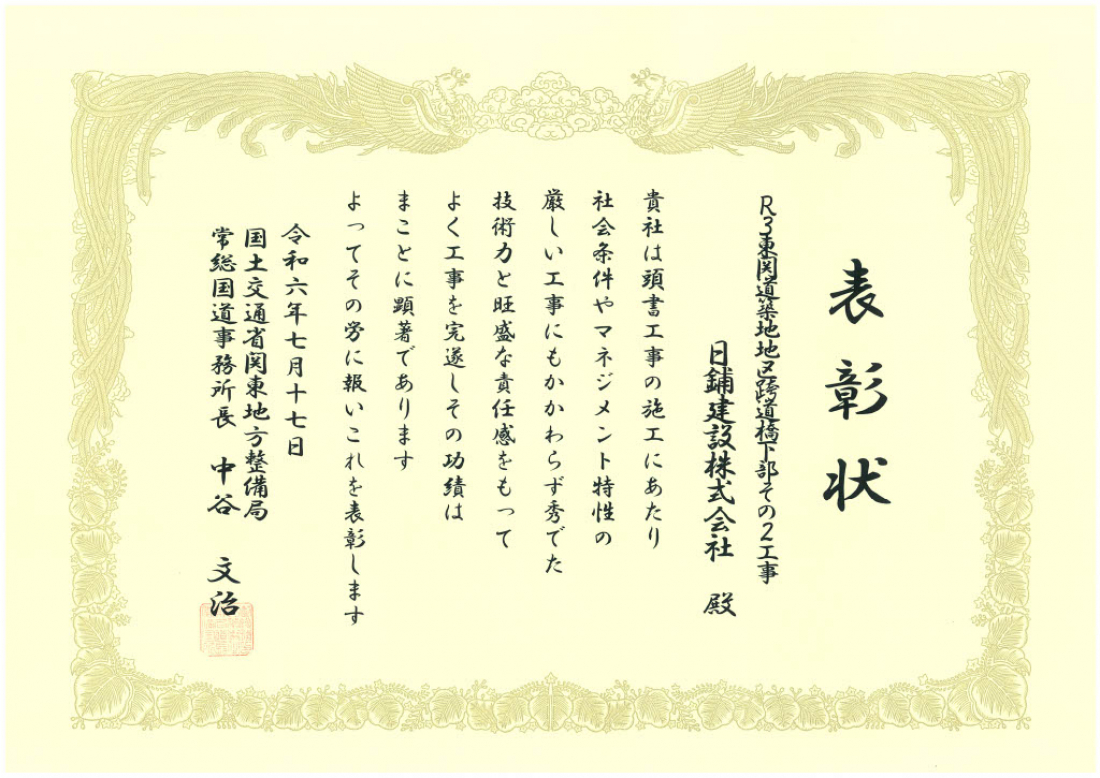 表彰状
R3東関道築地地区跨道橋下部その2工事
日鋪建設株式会社 殿
貴社は頭書工事の施工にあたり
社会条件やマネジメント特性の
厳しい工事にもかかわらず秀でた
技術力と旺盛な責任感をもって
よく工事を完遂しその功績は
まことに顕著であります
よってその労に報いこれを表彰します
令和六年七月十七日
国土交通省関東地方整備局
常総国道事務所長 中谷 文治